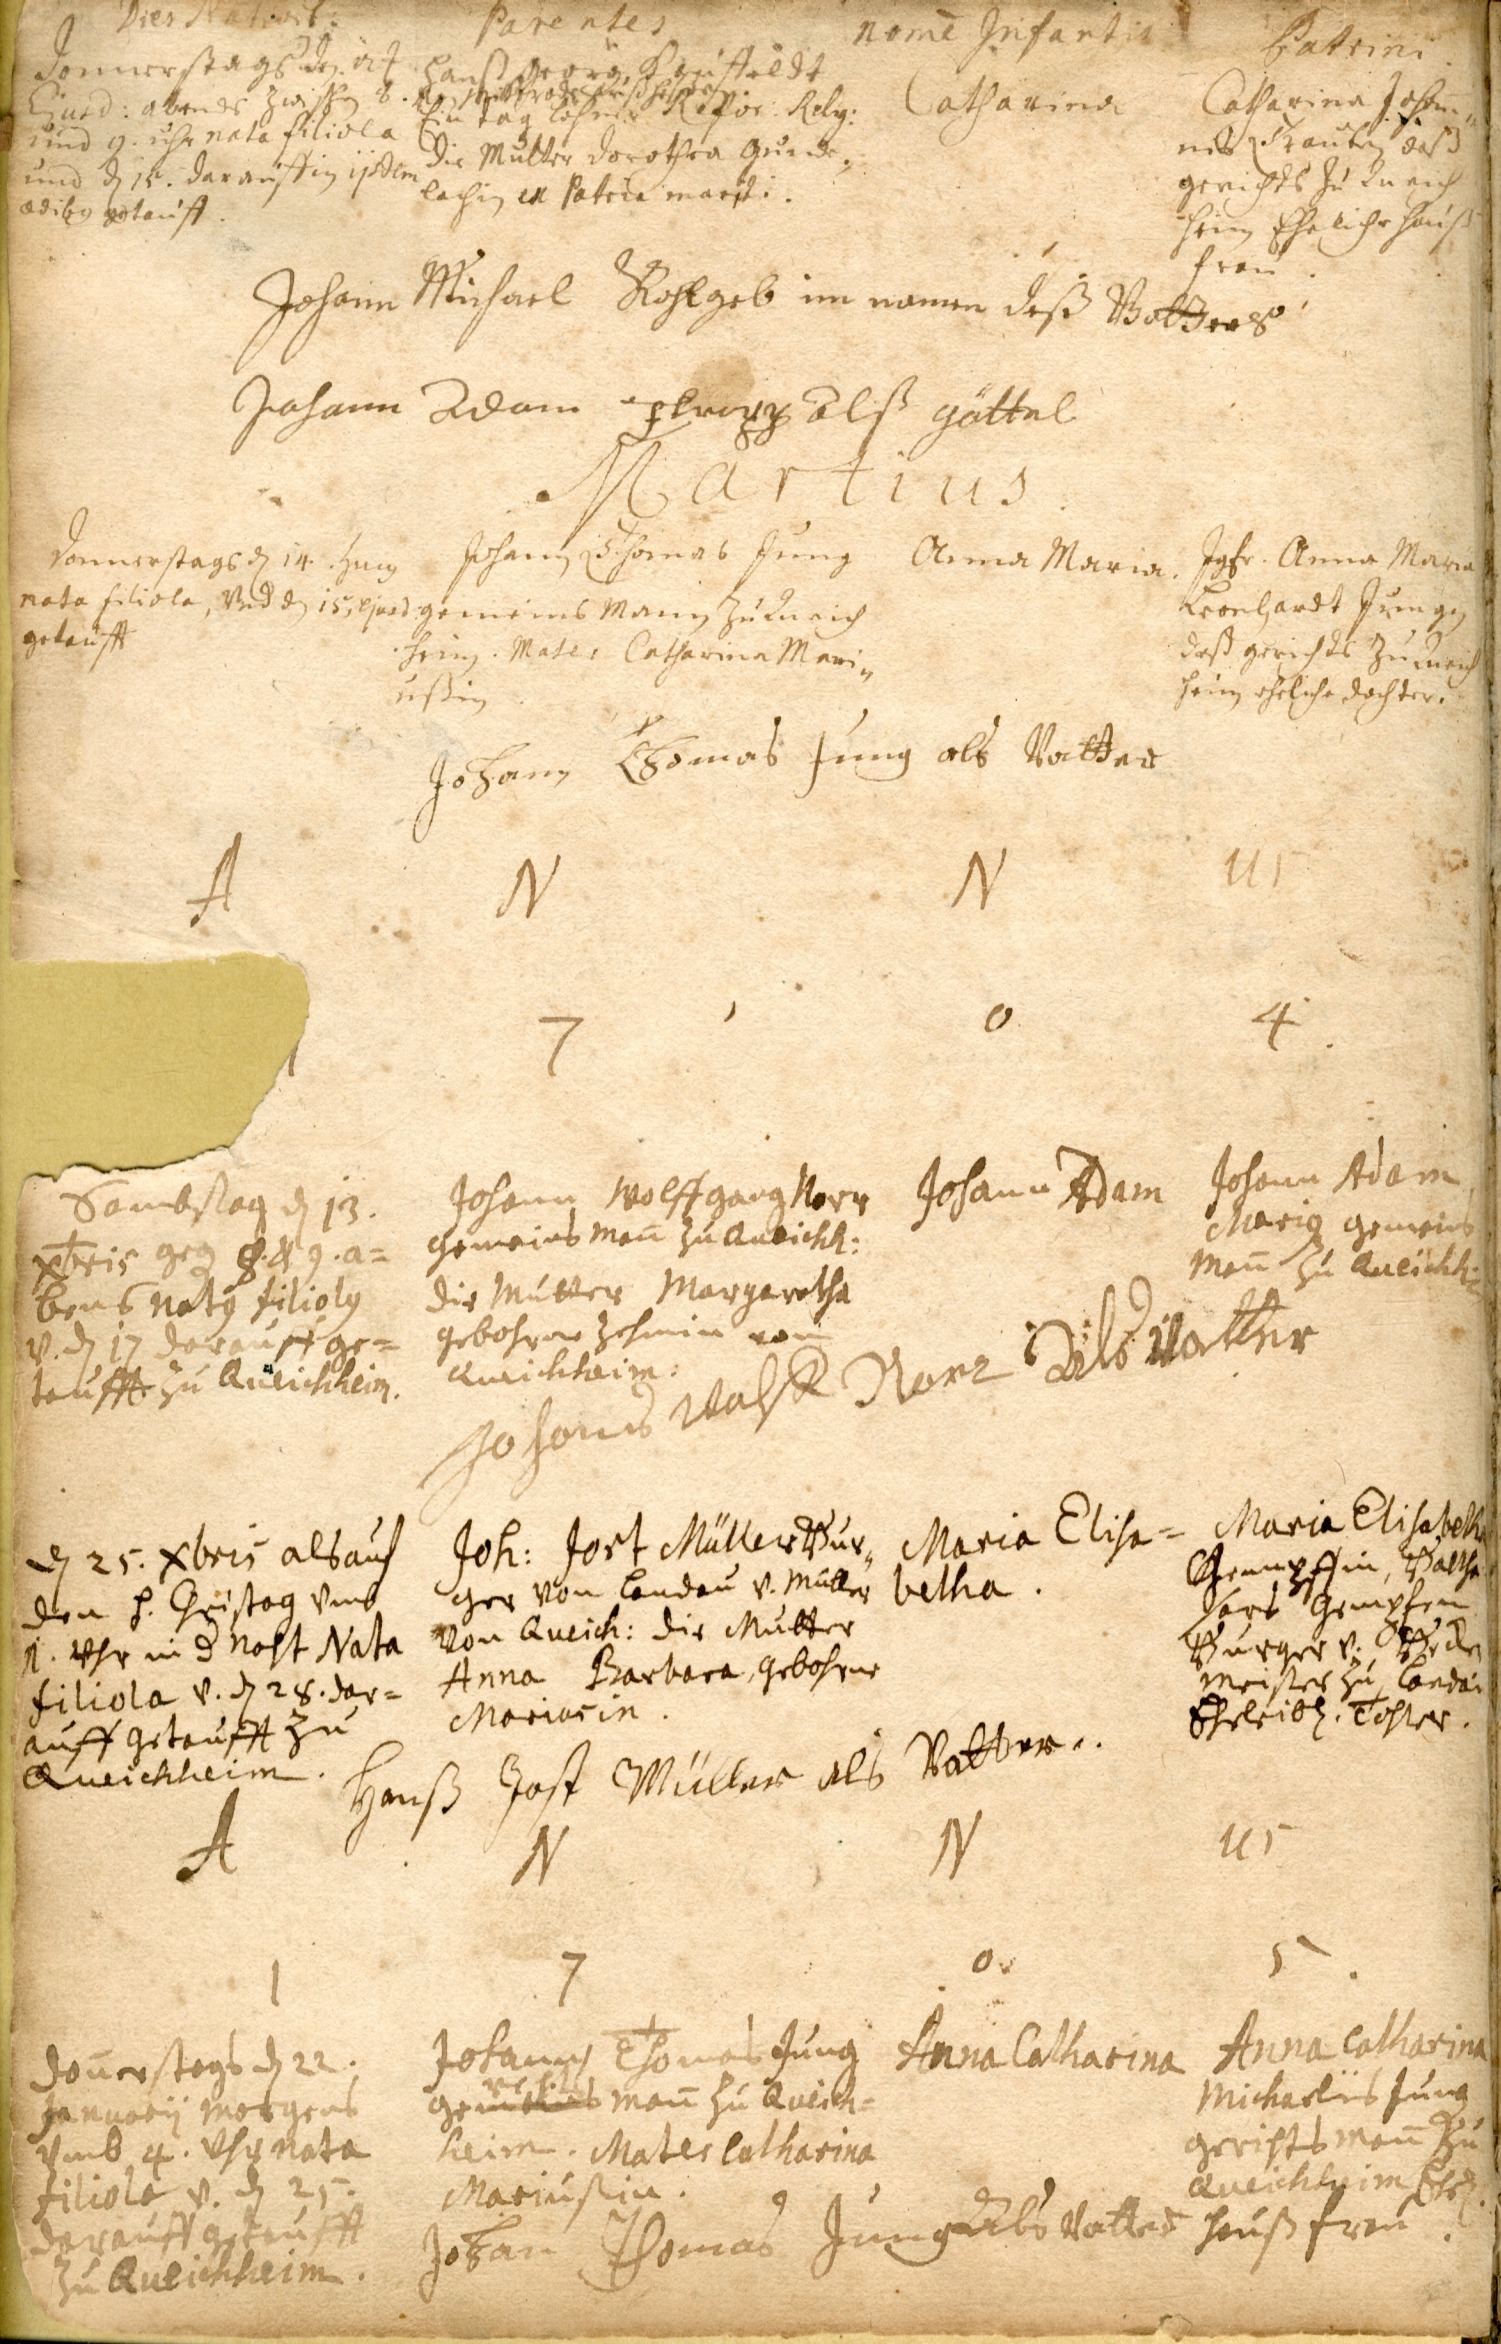 Dies Nativit:
Parentes
nomē Infantis
Patrini.
Donnerstags
Ejusd: abends zwischen 8.
und 9. uhr nata filiola
und d 15. darauff in ijsdem
ædibg getaufft.
Hanß Georg
Ein tag löhner Refor: Relg:
die Mutter Dorothea
ex Patria mariti.
Catharina
Catharina Johan-
nis Trauten deß
gerichts zu Queich
heim Eheliche hauß
frau.
Johann Michael Kohlgeb im namen deß Vatters
Johann Adam alß göttel
Martius
Donnerstags d 14. hujus
nata filiola, Und d 15 ejusd
getaufft
Johann Thomas Jung
gemeins Mann zu Queich
heim. Mater Catharina Mari-
ußin
Anna Maria.
Jgfr. Anna Maria
Leonhardt Jungen
deß gerichts zu Queich
heim eheliche dochter.
Johann Thomas Jung als Vatter
A N N us
7 0 4
Sambstag d 13.
xbris geg 8. & 9. a=
bens natg filiolg
v. d 17 darauff ge=
taufft zu Queichheim.
Johann Wolffgang Norr
gemeins man̄ zu Queichh:
die Mutter Margaretha
gebohrne Zehmin von
Queichheim:
Johann Adam
Johann Adam
Marig gemeins
man̄ zu Queichh:
Johans Wolff Norr Als Vatter
d 25. xbris als auf
den h. Christag umb
11. Uhr in d Nacht Nata
filiola v. d 28. dar=
auff getaufft zu
Queichheim.
Joh: Jost Müller Bur-
ger von Landau v. Müller
von Queich: die Mutter
Anna Barbara, gebohrne
Mariasin.
Maria Elisa=
betha.
Maria Elisabetha
Gempffin, Baltha
sars Gempfen
Burger v. Becker
meister zu Landau
Eheleibl. Tochter.
Hanß Jost Müller als Vatter.
A N N us
1 7 0 5.
Don̄erstags d 22.
Januarij morgens
umb 4. Uhr nata
filiola v. d 25.
darauff getaufft
zu Queichheim.
Johann Thomas Jung
man̄ zu Queich=
heim. Mater Catharina
Mariußin.
Anna Catharina
Anna Catharina
Michaelis Jung
gerichtsman̄ zu
Queichheim Ehel.
haußfrau.
Johan Thomas Jung Als Vatter